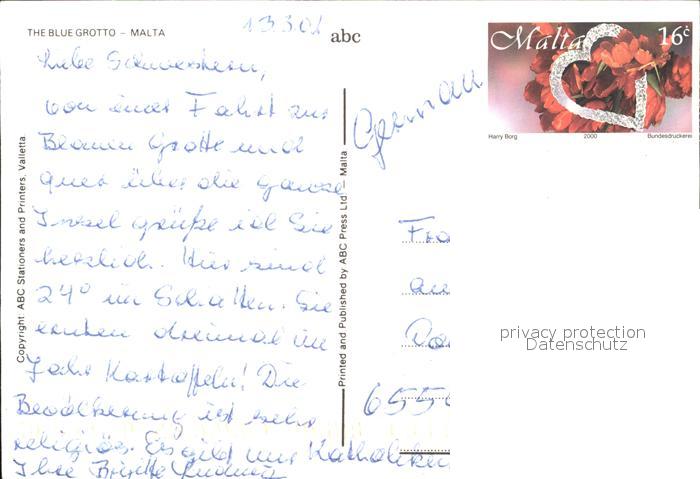 THE BLUE GROTTO – MALTA
13.3.01
abc
Malta 16c
Harry Borg 2000 Bundesdruckerei
Germany
Liebe Schwestern,
von einer Fahrt zur
Blauen Grotte und
quer über die ganze
Insel grüße ich Sie
herzlich. Hier sind
24° im Schatten. Sie
ernten dreimal im
Jahr Kartoffeln! Die
Bevölkerung ist sehr
religiös. Es gibt nur Katholiken
Ihre Brigitte
Copyright: ABC Stationers and Printers, Valletta.
Printed and Published by ABC Press Ltd. – Malta
privacy protection
Datenschutz